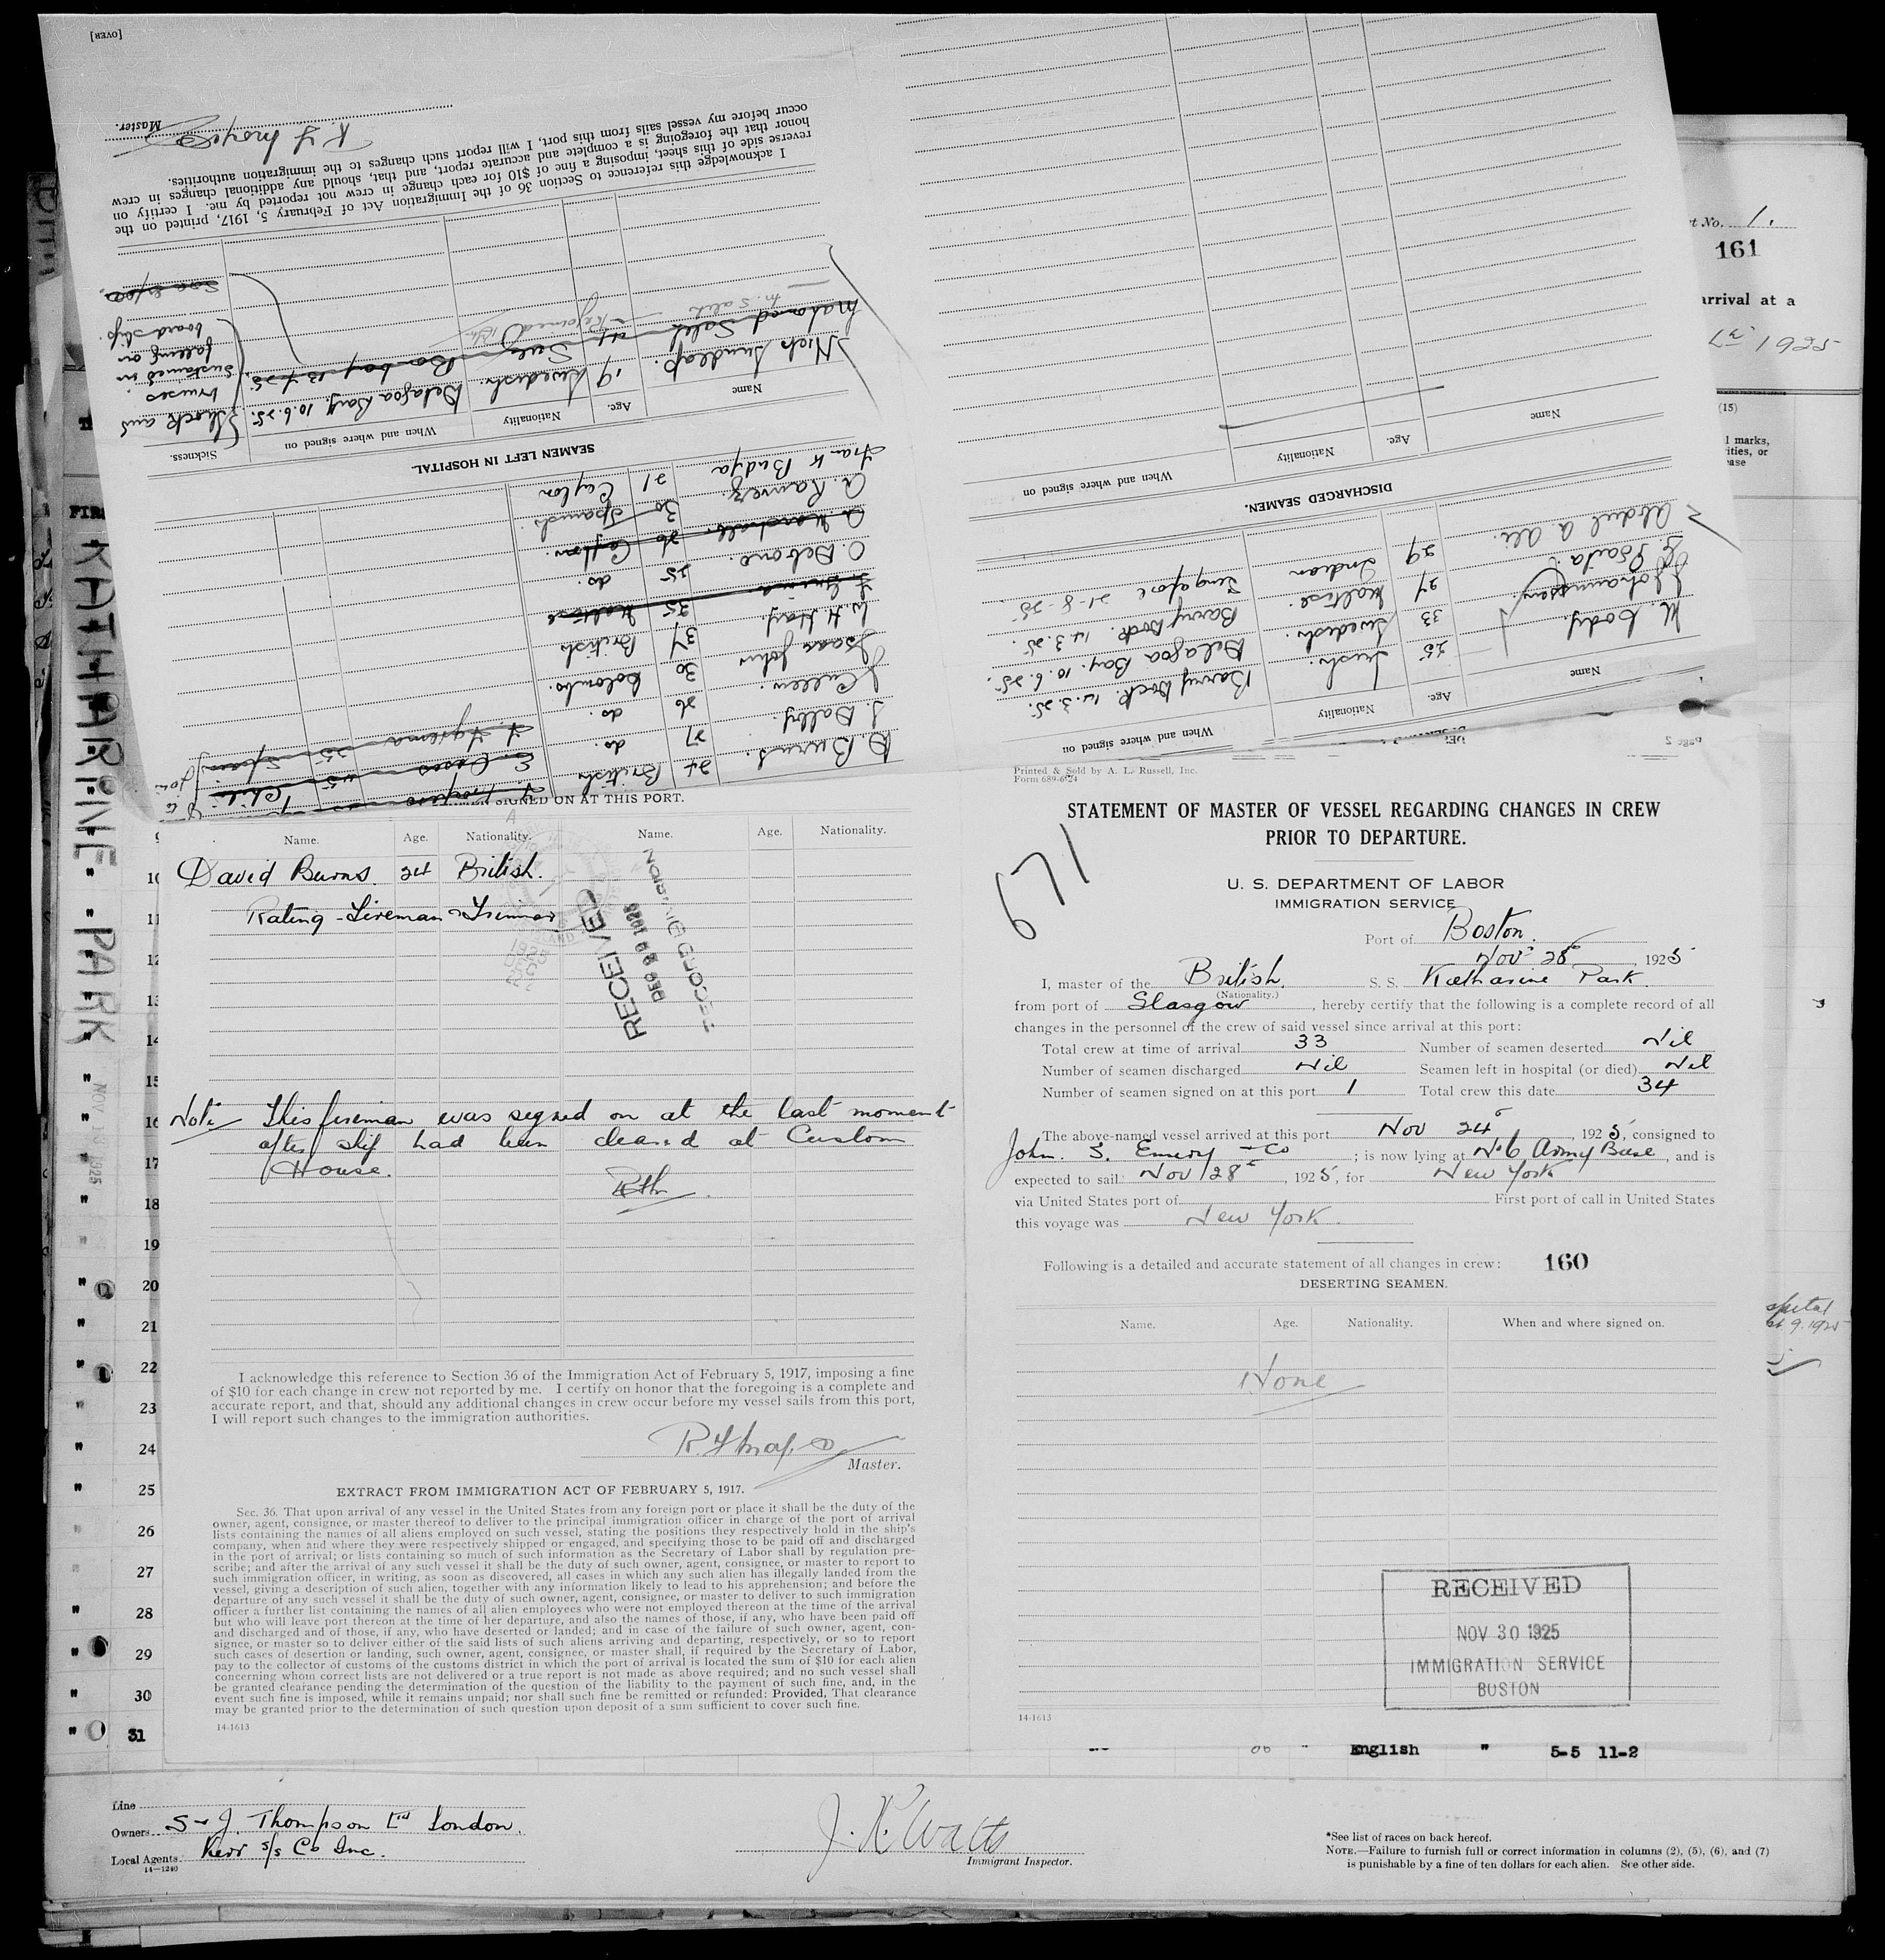 [OVER]
K. F. Moyes
Master.
I acknowledge this reference to Section 36 of the Immigration Act of February 5, 1917, printed on the
reverse side of this sheet, imposing a fine of $10 for each change in crew not reported by me. I certify on
honor that the foregoing is a complete and accurate report, and that, should any additional changes in crew
occur before my vessel sails from this port, I will report such changes to the immigration authorities.
SEAMEN LEFT IN HOSPITAL
Name Age. Nationality When and where signed on Sickness.
19 Swedish. Delagoa Bay. 10.6.25. Shock and
bruises
sustained in
falling on
board ship.
Rejoined
D. Burns. 24 British
J. Dalby. 27 do.
J. Cullen. 26 do.
Isaac John 30 Colombo.
W. H. Hay. 37 British
35 Maltese
O. Debono. 25 do.
26 Ceylon.
A. Ramirez. 30 Spanish.
Frank Budya 21 Ceylon
DISCHARGED SEAMEN.
Name Age. Nationality When and where signed on
Name Age. Nationality When and where signed on
M. Cody. 25 Irish. Barry Dock. 14.3.25.
J. Johannssen. 33 Swedish. Delagoa Bay. 10.6.25.
27 Maltese. Barry Dock. 14.3.25.
Abdul A Ali. 29 Indian Singapore 21-8-25
t No. 1.
161
arrival at a
1925
(15)
l marks,
ities, or
ease
FIR
KATHARINE PARK
NOV 1925
SIGNED ON AT THIS PORT.
Name. Age. Nationality. Name. Age. Nationality.
David Burns. 24 British.
Rating - Fireman & Trimmer
RECEIVED
DEC 29 1925
RECORD DIVISION
Note This fireman was signed on at the last moment
after ship had been cleared at Custom
House.
I acknowledge this reference to Section 36 of the Immigration Act of February 5, 1917, imposing a fine
of $10 for each change in crew not reported by me. I certify on honor that the foregoing is a complete and
accurate report, and that, should any additional changes in crew occur before my vessel sails from this port,
I will report such changes to the immigration authorities.
Master.
EXTRACT FROM IMMIGRATION ACT OF FEBRUARY 5, 1917.
Sec. 36. That upon arrival of any vessel in the United States from any foreign port or place it shall be the duty of the
owner, agent, consignee, or master thereof to deliver to the principal immigration officer in charge of the port of arrival
lists containing the names of all aliens employed on such vessel, stating the positions they respectively hold in the ship's
company, when and where they were respectively shipped or engaged, and specifying those to be paid off and discharged
in the port of arrival; or lists containing so much of such information as the Secretary of Labor shall by regulation pre-
scribe; and after the arrival of any such vessel it shall be the duty of such owner, agent, consignee, or master to report to
such immigration officer, in writing, as soon as discovered, all cases in which any such alien has illegally landed from the
vessel, giving a description of such alien, together with any information likely to lead to his apprehension; and before the
departure of any such vessel it shall be the duty of such owner, agent, consignee, or master to deliver to such immigration
officer a further list containing the names of all alien employees who were not employed thereon at the time of the arrival
but who will leave port thereon at the time of her departure, and also the names of those, if any, who have been paid off
and discharged and of those, if any, who have deserted or landed; and in case of the failure of such owner, agent, con-
signee, or master so to deliver either of the said lists of such aliens arriving and departing, respectively, or so to report
such cases of desertion or landing, such owner, agent, consignee, or master shall, if required by the Secretary of Labor,
pay to the collector of customs of the customs district in which the port of arrival is located the sum of $10 for each alien
concerning whom correct lists are not delivered or a true report is not made as above required; and no such vessel shall
be granted clearance pending the determination of the question of the liability to the payment of such fine, and, in the
event such fine is imposed, while it remains unpaid; nor shall such fine be remitted or refunded: Provided, That clearance
may be granted prior to the determination of such question upon deposit of a sum sufficient to cover such fine.
14-1613
10
11
12
13
14
15
16
17
18
19
20
21
22
23
24
25
26
27
28
29
30
31
page 2
Printed & Sold by A. L. Russell, Inc.
Form 689-6-24
STATEMENT OF MASTER OF VESSEL REGARDING CHANGES IN CREW
PRIOR TO DEPARTURE.
671
U. S. DEPARTMENT OF LABOR
IMMIGRATION SERVICE
Port of Boston.
Nov 28, 1925
I, master of the British S. S. Katharine Park.
(Nationality.)
from port of Glasgow, hereby certify that the following is a complete record of all
changes in the personnel of the crew of said vessel since arrival at this port:
Total crew at time of arrival 33 Number of seamen deserted Nil
Number of seamen discharged Nil Seamen left in hospital (or died) Nil
Number of seamen signed on at this port 1 Total crew this date 34
The above-named vessel arrived at this port Nov 24, 1925, consigned to
John. S. Emery & Co; is now lying at No 6 Army Base, and is
expected to sail Nov 28, 1925, for New York
via United States port of First port of call in United States
this voyage was New York.
Following is a detailed and accurate statement of all changes in crew: 160
DESERTING SEAMEN.
Name. Age. Nationality. When and where signed on.
None
RECEIVED
NOV 30 1925
IMMIGRATION SERVICE
BOSTON
14-1613
English " 5-5 11-2
Line
Owners S & J. Thompson Ltd London.
Local Agents Kerr S/S Co Inc.
14-1240
J. K. Watts
Immigrant Inspector.
*See list of races on back hereof.
NOTE.—Failure to furnish full or correct information in columns (2), (5), (6), and (7)
is punishable by a fine of ten dollars for each alien. See other side.